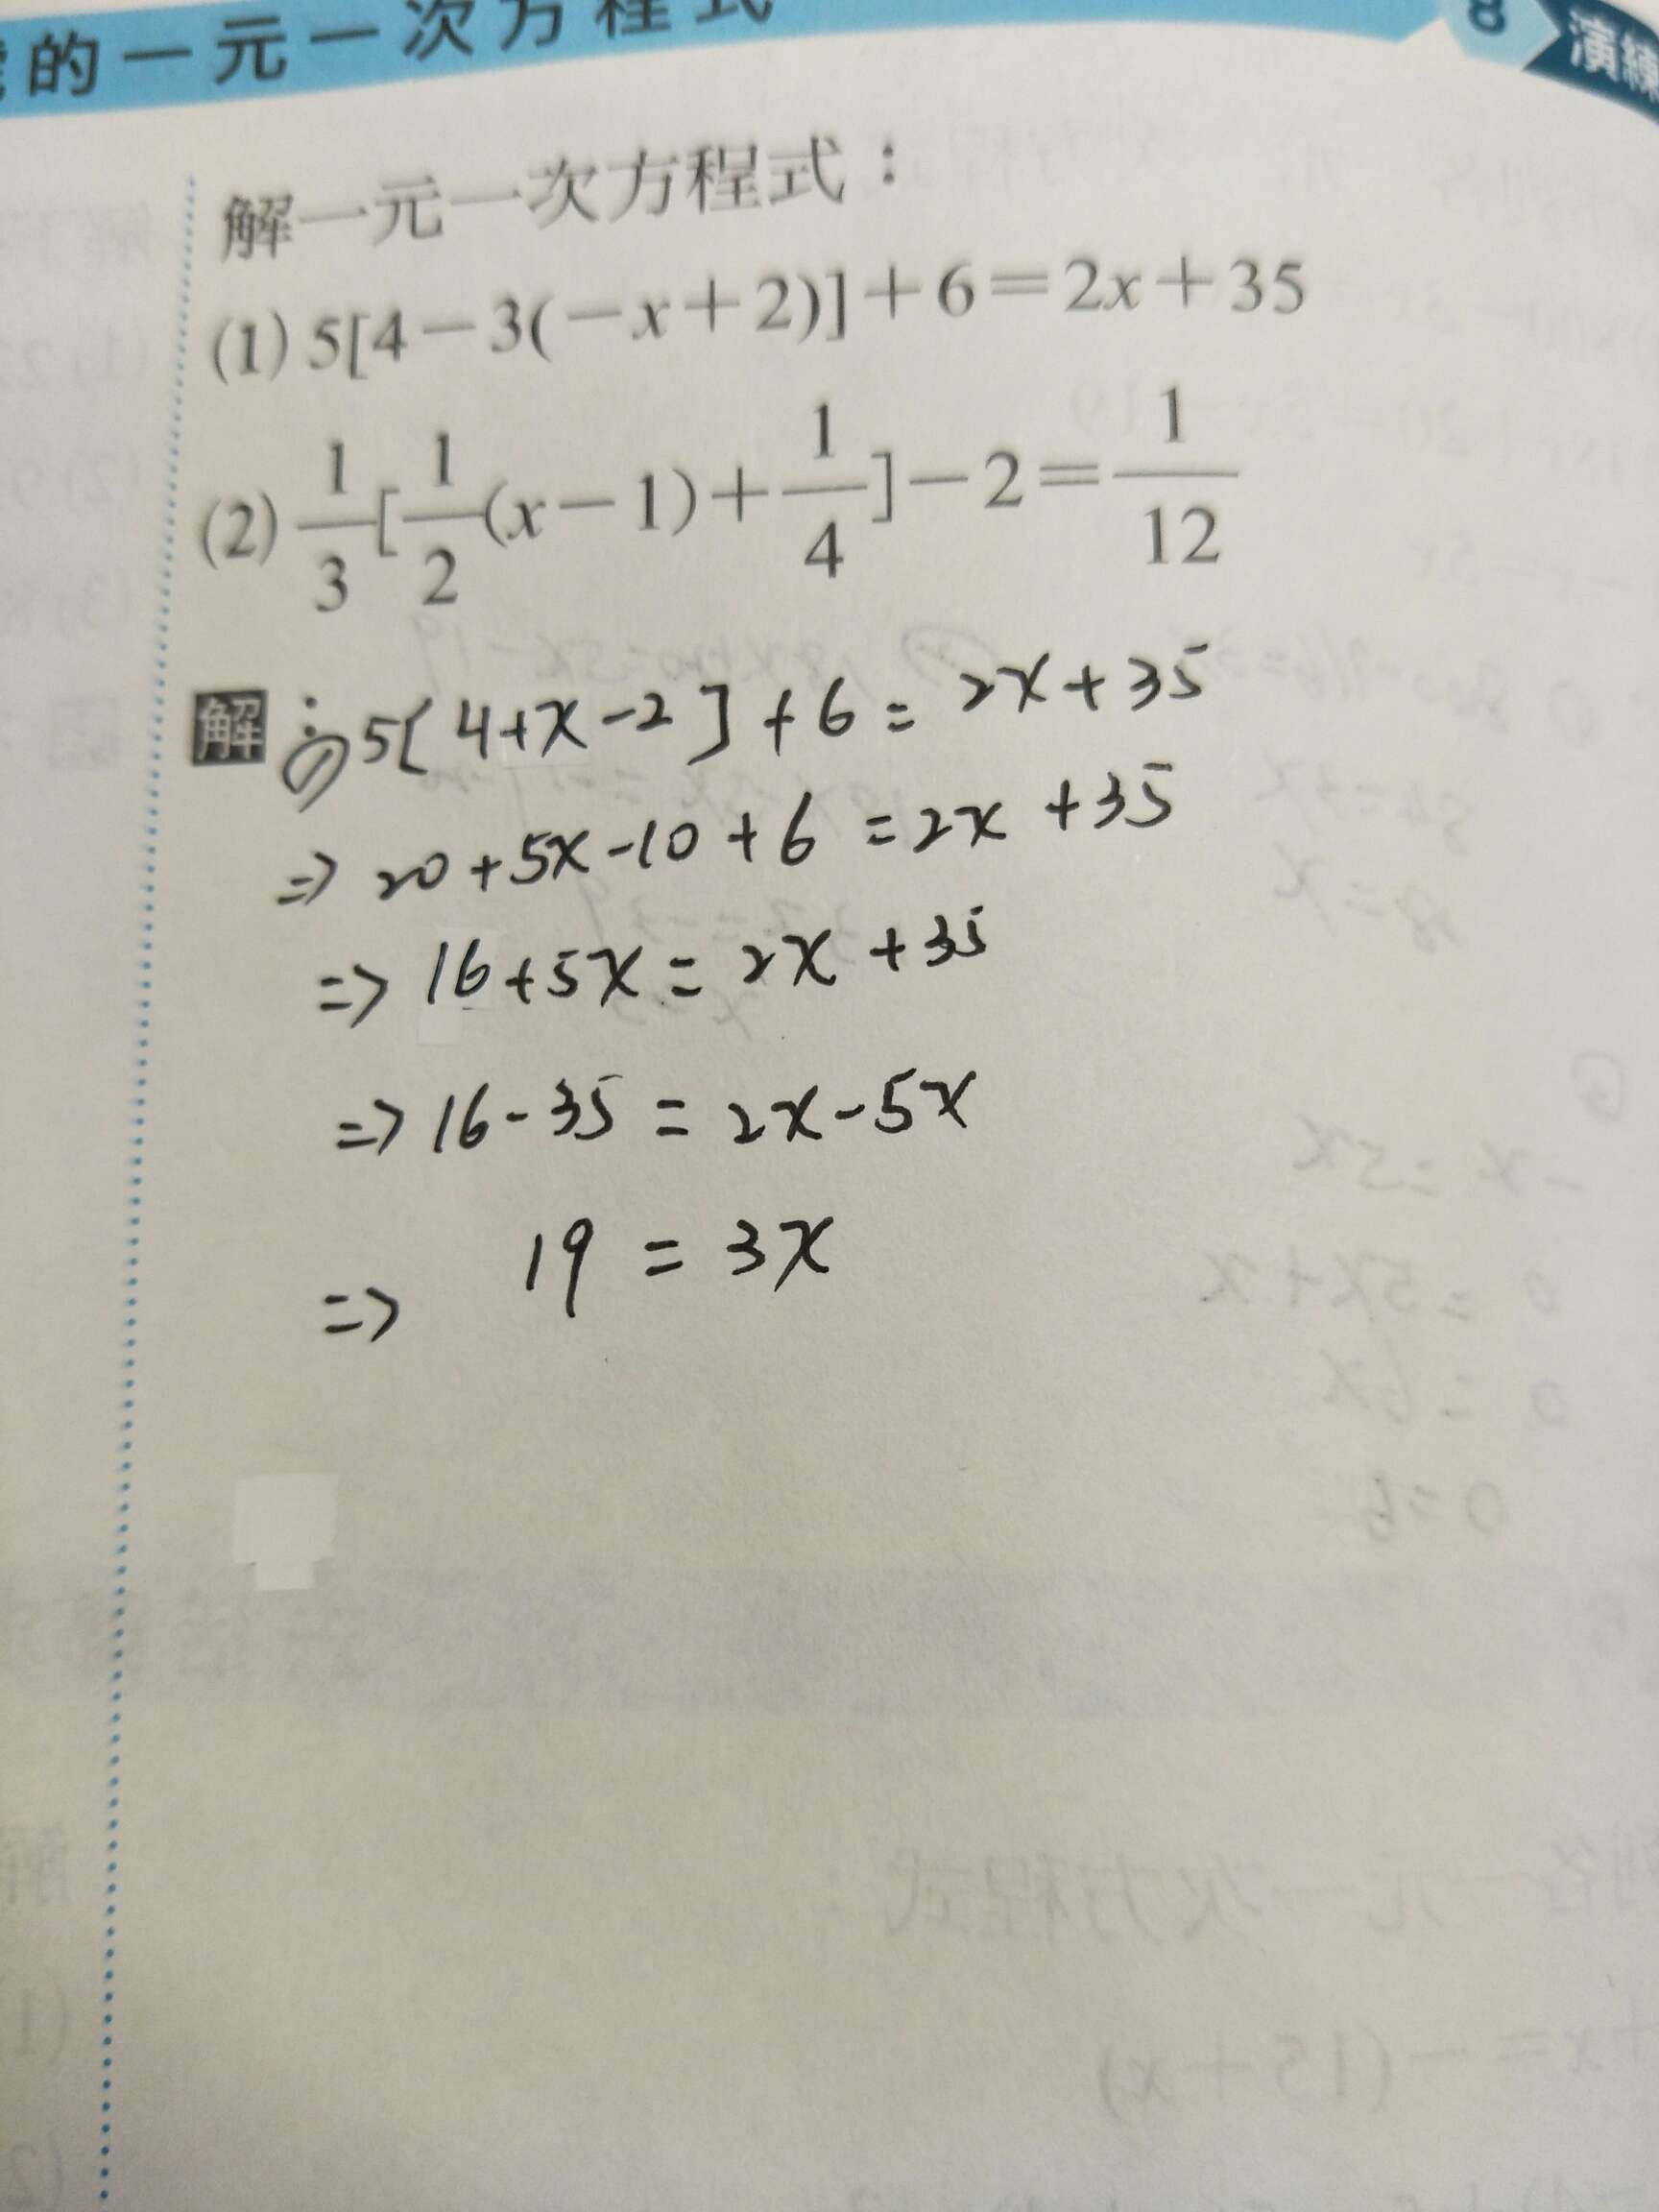 的一元一次方程式
8 演練
解一元一次方程式：
(1) 5[4－3(－x＋2)]＋6＝2x＋35
(2) 1/3[1/2(x－1)＋1/4]－2＝1/12
解 (1) 5[4+x-2]+6=2x+35
⇒ 20+5x-10+6=2x+35
⇒ 16+5x=2x+35
⇒ 16-35=2x-5x
⇒ 19=3x